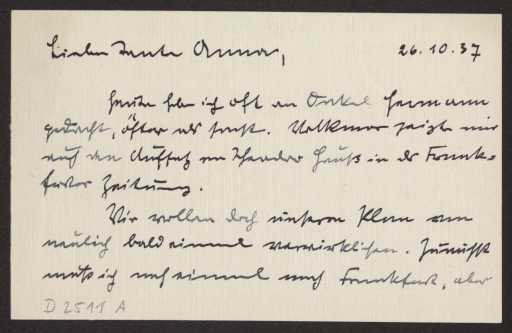 Liebe Tante Anna,
26.10.37
Heute habe ich oft an Onkel Hermann
gedacht, öfter als sonst. Volkmar zeigte mir
auch den Aufsatz von Theodor Heuß in der Frank-
furter Zeitung.
Wir wollen doch unseren Plan von
neulich bald einmal verwirklichen. Zunächst
muß ich noch einmal nach Frankfurt, aber
D 2511 A